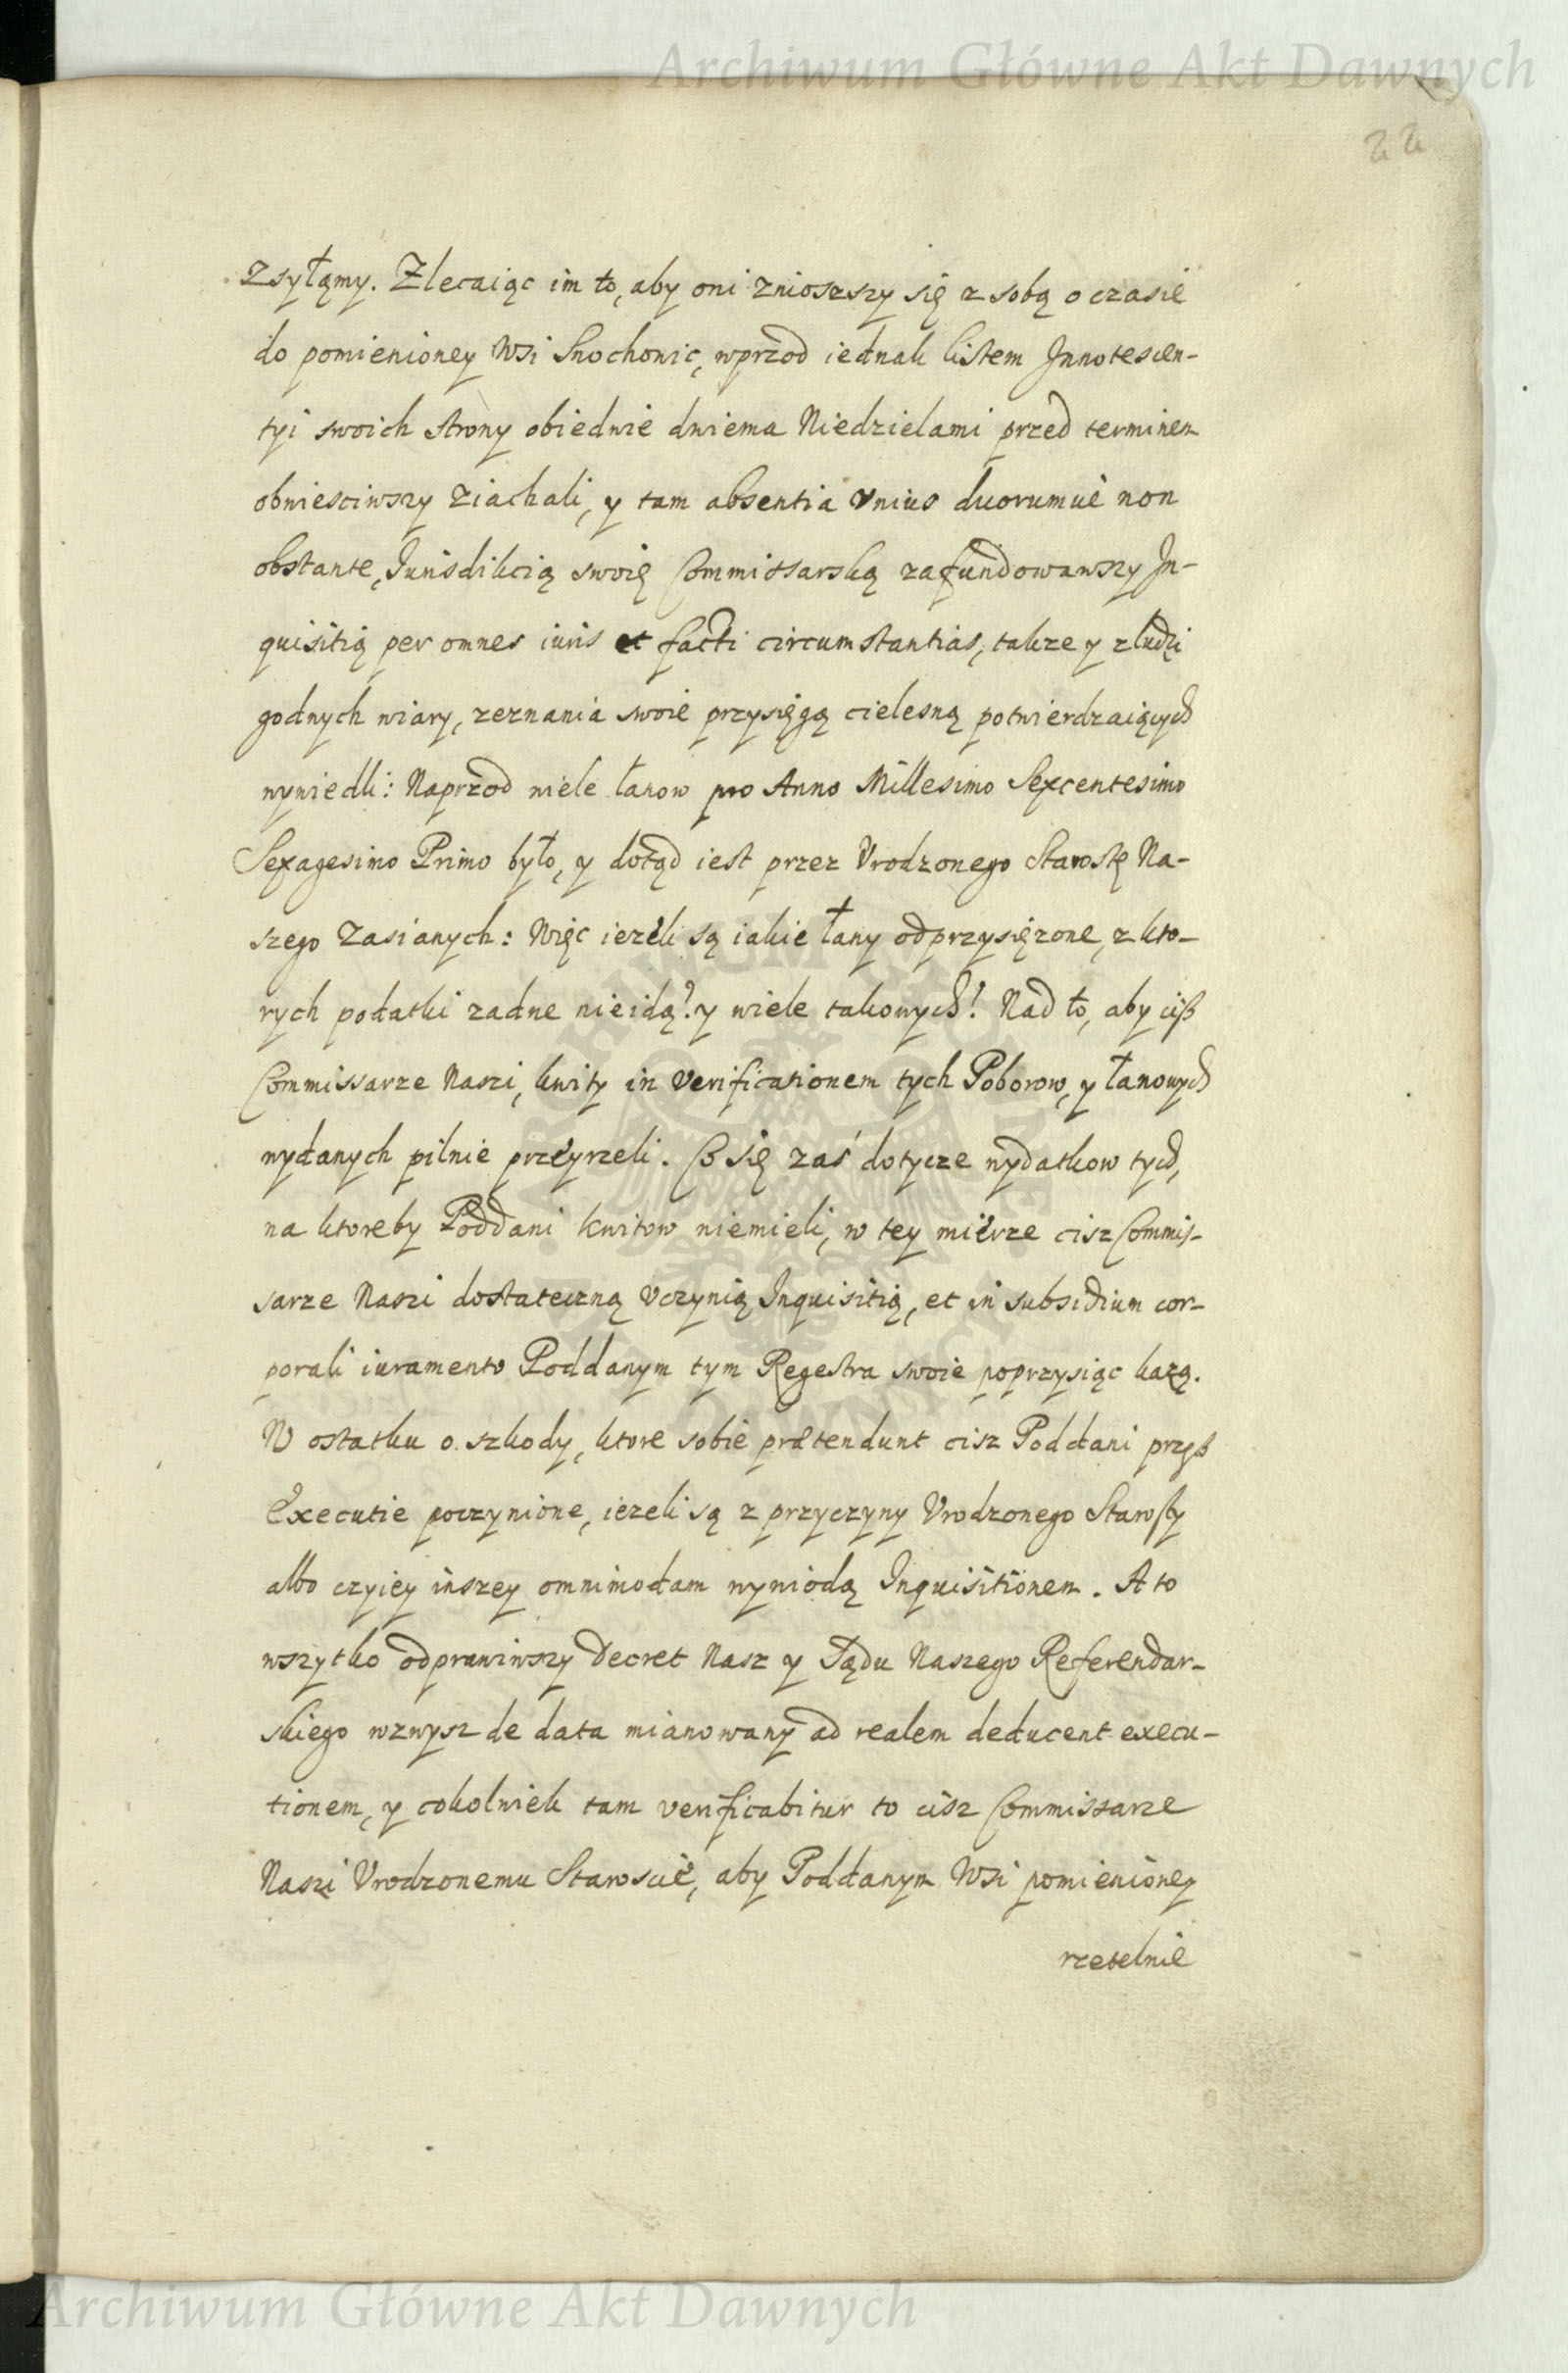 Archiwum Główne Akt Dawnych
22
Zsyłąmy. Zlecaiąc im to, aby oni zniosszy się z sobą o czasie
do pomienioney Wsi Snochowic, wprzod iednak listem Innotescen-
tyi swoich strony obiedwie dwiema Niedzielami przed terminem
obwiesciwszy ziachali, y tam absentia vnius duorumuè non
obstante, Iurisdikcią swoię Commissarską zafundowawszy In-
quisitią per omnes iuris et facti circumstantias, takze y z ludzi
godnych wiary, zeznania swoie przysięgą cielesną potwierdzaiących
wywiedli: Naprzod wiele łanow pro Anno Millesimo Sexcentesimo
Sexagesimo Primo było, y dotąd iest przez Vrodzonego Starostę Na-
szego Zasianych: Więc iezeli są iakie łany odprzysięzone, z kto-
rych podatki zadne nieidą? y wiele takowych? Nad to, aby ciß
Commissarze Naszi, kwity in verificationem tych Poborow, y łanowych
wydanych pilnie przeyrzeli. Co się zaś dotycze wydatkow tych,
na ktoreby Poddani kwitow niemieli, w tey mierze cisz Commis-
sarze Naszi dostateczną vczynią Inquisitią, et in subsidium cor-
porali iuramento Poddanym tym Regestra swoie poprzysiąc kazą.
W ostatku o szkody, ktore sobie prætendunt cisz Poddani przeß
Executie poczynione, iezeli są z przyczyny Vrodzonego Starosty
albo czyiey inszey omnimodam wywiodą Inquisitionem. A to
wszytko odprawiwszy Decret Nasz y Sądu Naszego Referendar-
skiego wzwysz de data mianowany ad realem deducent execu-
tionem, y cokolwiek tam verificabitur to cisz Commissarze
Naszi Vrodzonemu Staroscie, aby Poddanym Wsi pomienioney
rzetelnie
Archiwum Główne Akt Dawnych